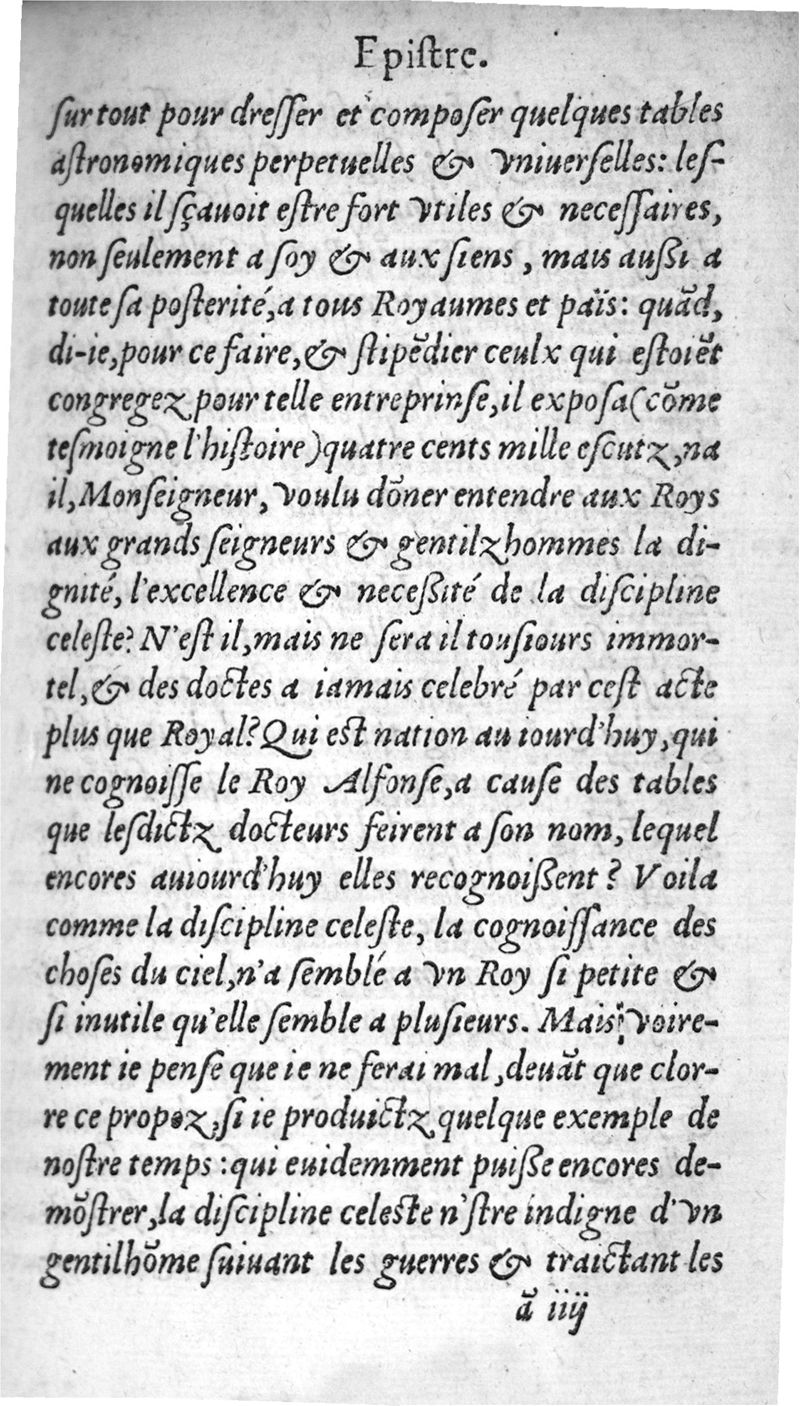 Epiſtre.
ſur tout pour dreſſer et compoſer quelques tables
aſtronomiques perpetuelles & vniuerſelles: leſ-
quelles il ſçauoit eſtre fort vtiles & neceſſaires,
non ſeulement a ſoy & aux ſiens, mais außi a
toute ſa poſterité, a tous Royaumes et païs: quãd,
di-ie, pour ce faire, & ſtipẽdier ceulx qui eſtoiẽt
congregez pour telle entreprinſe, il expoſa (cõme
teſmoigne l'hiſtoire) quatre cents mille eſcutz, na
il, Monſeigneur, voulu dõner entendre aux Roys
aux grands ſeigneurs & gentilzhommes la di-
gnité, l'excellence & neceßité de la diſcipline
celeſte? N'eſt il, mais ne ſera il touſiours immor-
tel, & des doctes a iamais celebré par ceſt acte
plus que Royal? Qui eſt nation au iourd'huy, qui
ne cognoiſſe le Roy Alfonſe, a cauſe des tables
que leſdictz docteurs feirent a ſon nom, lequel
encores auiourd'huy elles recognoißent? Voila
comme la diſcipline celeſte, la cognoiſſance des
choſes du ciel, n'a ſemblé a vn Roy ſi petite &
ſi inutile qu'elle ſemble a pluſieurs. Mais voire-
ment ie penſe que ie ne ferai mal, deuãt que clor-
re ce propoz, ſi ie produictz quelque exemple de
noſtre temps: qui euidemment puiße encores de-
mõſtrer, la diſcipline celeſte n'ſtre indigne d'vn
gentilhõme ſuiuant les guerres & traictant les
ã iiij